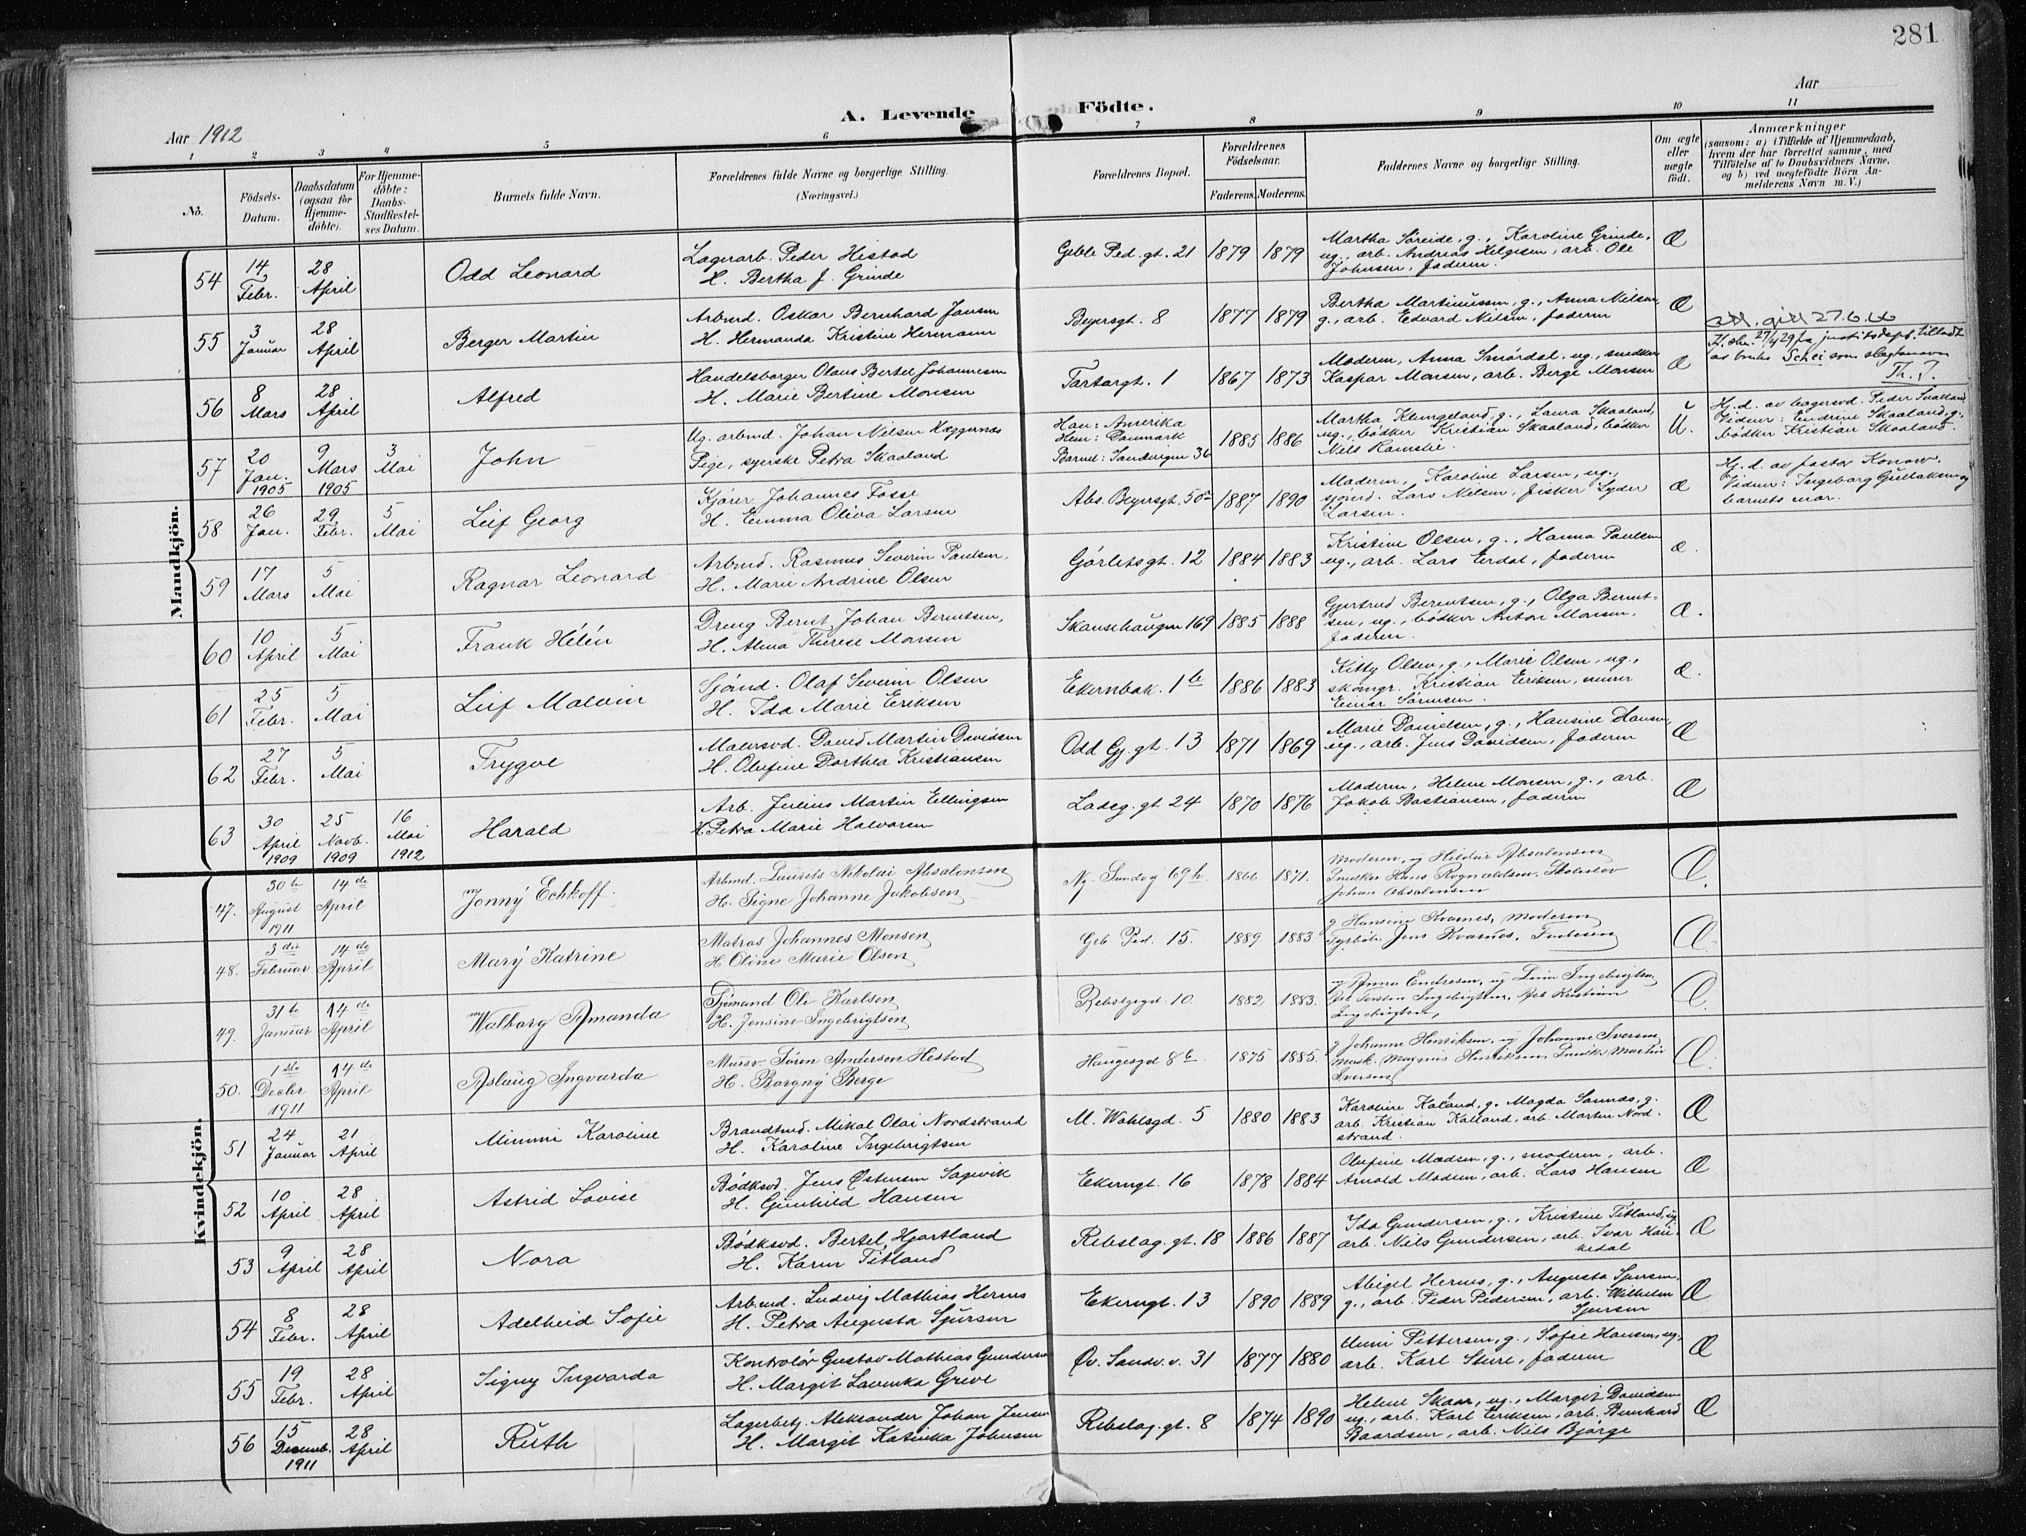 281
Aar
A. Levende Födte.
Aar 1912
1 2 3 4 5 6 7 8 9 10 11
No.
Födsels-Datum.
Daabsdatum (ogsaa för Hjemmedöbte).
For Hjemmedöbte: Daabs-Stadfæstelses Datum.
Barnets fulde Navn.
Forældrenes fulde Navne og borgerlige Stilling.
(Næringsvei.)
Forældrenes Bopæl.
Forældrenes Födselsaar.
Faderens. Moderens.
Faddernes Navne og borgerlige Stilling.
Om ægte eller uægte födt.
Anmærkninger
(saasom: a) i Tilfælde af Hjemmedaab, hvem der har forrettet samme, med Tilföielse af to Daabsvidners Navne, og b) ved uægtefödte Börn Anmelderens Navn m. V.)
Mandkjön.
54 14 Febr. 28 April Odd Leonard
Lagerarb. Peder Hestad
H. Bertha J. Grinde
Geble Ped. gt. 21 1879 1879
Martha Søreide, g., Karoline Grinde,
ug., arb. Andreas Helgesen, arb. Ole
Johnsen, faderen.
Æ
55 3 Januar 28 April Berger Martin
Arbmd. Oskar Bernhard Jansen
H. Hermanda Kristine Hermann
Beyersgt. 8 1877 1879
Bertha Martinussen, g., Anna Nilsen,
g., arb. Edvard Nilsen, faderen
Æ
56 8 Mars 28 April Alfred
Handelsborger Olaus Bertel Johannesen
H. Marie Bertine Monsen
Tartargt. 1 1867 1873
Moderen, Anna Smørdal, ug., snedker
Kaspar Monsen, arb. Berge Monsen
Æ
att. gitt 27.6.66
27/4 29 fra justitsdept. tilladt
at bruke Schei som slegtsnavn
Th. J.
57 20 Jan. 1905 9 Mars 1905 3 Mai John
Ug. arbmd. Johan Nilsen Hæggernæs
Pige, syerske Petra Skaaland
Han: Amerika
Hun: Danmark
Barnet: Sandvigen 36 1885 1886
Martha Klungeland, g., Laura Skaaland,
ug., bødker Kristian Skaaland, bødker
Nils Ramslie.
U.
Hj. d. av bagersvd. Peder Svalland
Vidner: Endrine Skaaland, g.,
bødker Kristian Skaaland.
58 26 Jan. 29 Febr. 5 Mai Leif Georg
Kjører Johannes Fosse
H. Emma Oliva Larsen
Abs. Beyersgt. 50a 1887 1890
Moderen, Karoline Larsen, ug.,
sjømd. Lars Nilsen, fisker Lyder
Larsen.
Æ
Hj. d. av pastor Konow.
Vidner: Ingeborg Gullaksen og
barnets mor.
59 17 Mars 5 Mai Ragnar Leonard
Arbmd. Rasmus Severin Paulsen.
H. Marie Andrine Olsen
Gørlitsgt. 12 1884 1883
Kristine Olsen, g., Hanna Paulsen
ug., arb. Lars Erdal, faderen
Æ.
60 10 April 5 Mai Frank Hélén
Dreng Bernt Johan Berntsen,
H. Alma Therese Monsen
Skansehaugen 169 1885 1888
Gjertrud Berentsen, g., Olga Bernt-
sen, ug., bødker Anton Monsen,
faderen.
Æ.
61 25 Febr. 5 Mai Leif Malvin
Sjømd. Olaf Severin Olsen
H. Ida Marie Eriksen
Ekernbak. 1b 1886 1883
Kitty Olsen, g., Marie Olsen, ug.,
skomgr. Kristian Eriksen, murer
Einar Sørensen.
Æ.
62 27 Febr. 5 Mai Trygve
Malersvd. David Martin Davidsen
H. Olufine Dorthea Kristiansen
Odd Gj. gt. 13 1871 1869
Marie Danielsen, g., Hansine Hansen,
ug., arb. Jens Davidsen, faderen
Æ
63 30 April 1909 25 Novb. 1909 16 Mai 1912 Harald
Arb. Julius Martin Ellingsen
H. Petra Marie Halvorsen
Ladeg. gt 24 1870 1876
Moderen, Helene Monsen, g., arb.
Jakob Bastiansen, faderen
Æ
Kvindekjön.
47. 30te August 1911 14de April Jonny Echhoff
Arbmd. Laurits Nikolai Absalonsen
H. Signe Johanne Jakobsen
Ny. Sandvg 69h 1866 1871.
Moderen, ug Hildur Absalonsen
Snedker Hans Rognaldsen, Skoleelev
Johan Absalonsen
Æ.
48. 3die Februar 14de April Mary Katrine
Matros Johannes Monsen
H Oline Marie Olsen
Geb Ped. 15. 1889 1883.
g Hansine Kvarnes, Moderen
Fyrbøt. Jens Kvarnes, Faderen
Æ.
49. 31te Januar 14de April Walborg Amanda
Sjømand Ole Karlsen
H. Jensine Ingebrigtsen
Rebslgrgd 10. 1882 1883.
ug Anna Endresen, ug Lina Ingebrigtsen,
Arb Torsten Ingebrigtsen, Arb Kristian
Ingebrigtsen,
Æ.
50. 1ste Decbr 1911 14de April Aslaug Ingvarda
Mursv. Søren Andersen Hestad
H. Borgny Berge
Haugesgd 8b 1875 1885.
g Johanne Henriksen, ug Johanne Iversen,
Mask. Magnus Henriksen Snedker Martin
Iversen
Æ.
51 24 Januar 21 April Mimmi Karoline
Brandbmd. Mikal Olai Nordstrand
H. Karoline Ingebrigtsen
M. Wahlsgd. 5 1880 1883
Karoline Kaland, g. Magda Sannæs, g.
arb. Kristian Kalland, arb. Martin Nord-
strand.
Æ
52 10 April 28 April Astrid Lovise
Bødksvd. Jens Østensen Sagevik
H. Gunhild Hansen
Ekerngt. 16 1878 1884
Olufine Madsen, g., moderen, arb.
Arnold Madsen, arb. Lars Hansen
Æ
53 9 April 28 April Nora
Bødksvd. Bertel Hjortland
H. Karen Titland
Rebslag. gt. 18 1886 1887
Ida Gundersen, g., Kristine Titland, ug
arb. Nils Gundersen, arb. Ivar Hau-
kedal
Æ
54 8 Febr. 28 April Adelheid Sofie
Arbmd. Ludvig Mathias Hernes
H. Petra Augusta Sjursen
Ekerngt. 13 1890 1889
Abigel Hernes, g., Augusta Sjursen,
g., arb. Peder Pedersen, arb. Wilhelm
Sjursen
Æ
55 19 Febr. 28 April Signy Ingvarda
Kontrolør Gustav Mathias Gundersen
H. Margit Lavinka Greve
Øv. Sandv. v. 31 1877 1880
Unni Pettersen, g., Sofie Hansen, ug.,
arb. Karl Sture, faderen
Æ
56 15 Decemb. 1911 28 April Ruth
Lagerbetj. Aleksander Johan Jensen
H. Margit Katinka Johnsen
Rebslag. gt. 8 1874 1890
Helene Skaar, ug., Margit Davidsen
ug., arb. Karl Eriksen, arb. Bernhard
Baardsen, arb. Nils Bjørge
Æ